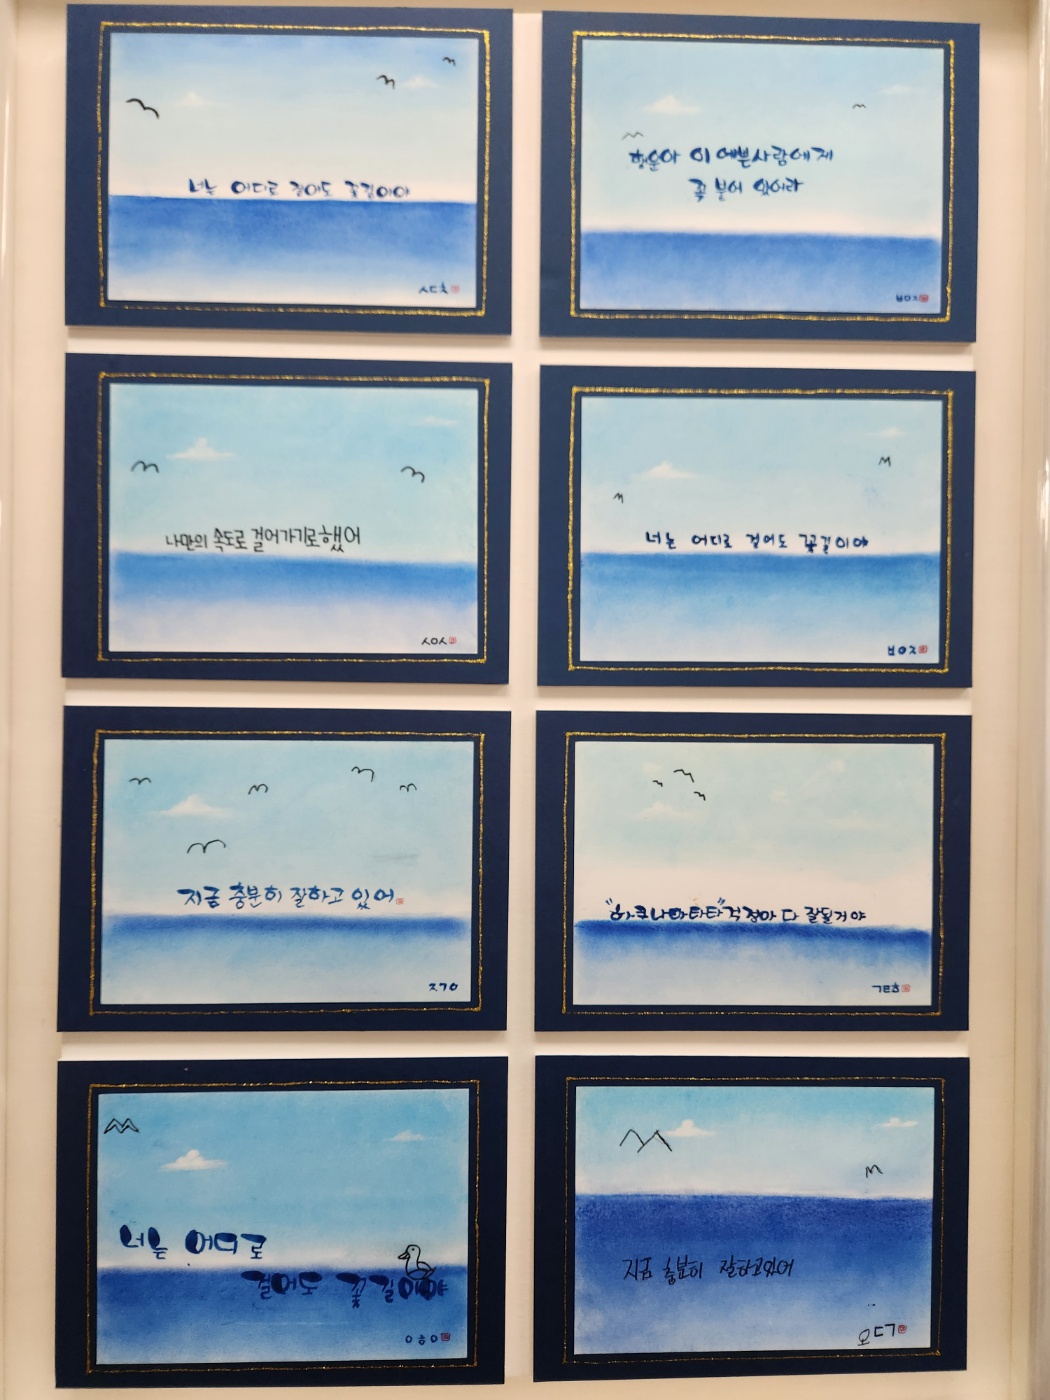 너는 어디로 걸어도 꽃길이야
ㅅㄷㅊ
행운아 이 예쁜사람에게
꼭 붙어 있어라
ㅂㅇㅈ
나만의 속도로 걸어가기로했어
ㅅㅇㅅ
너는 어디로 걸어도 꽃길이야
ㅂㅇㅈ
지금 충분히 잘하고 있어
ㅈㄱㅇ
"하쿠나마타타" 걱정마 다 잘될거야
ㄱㅌㅎ
너는 어디로
걸어도 꽃길이야
ㅇㅎㅇ
지금 충분히 잘하고있어
ㅇㄷㄱ